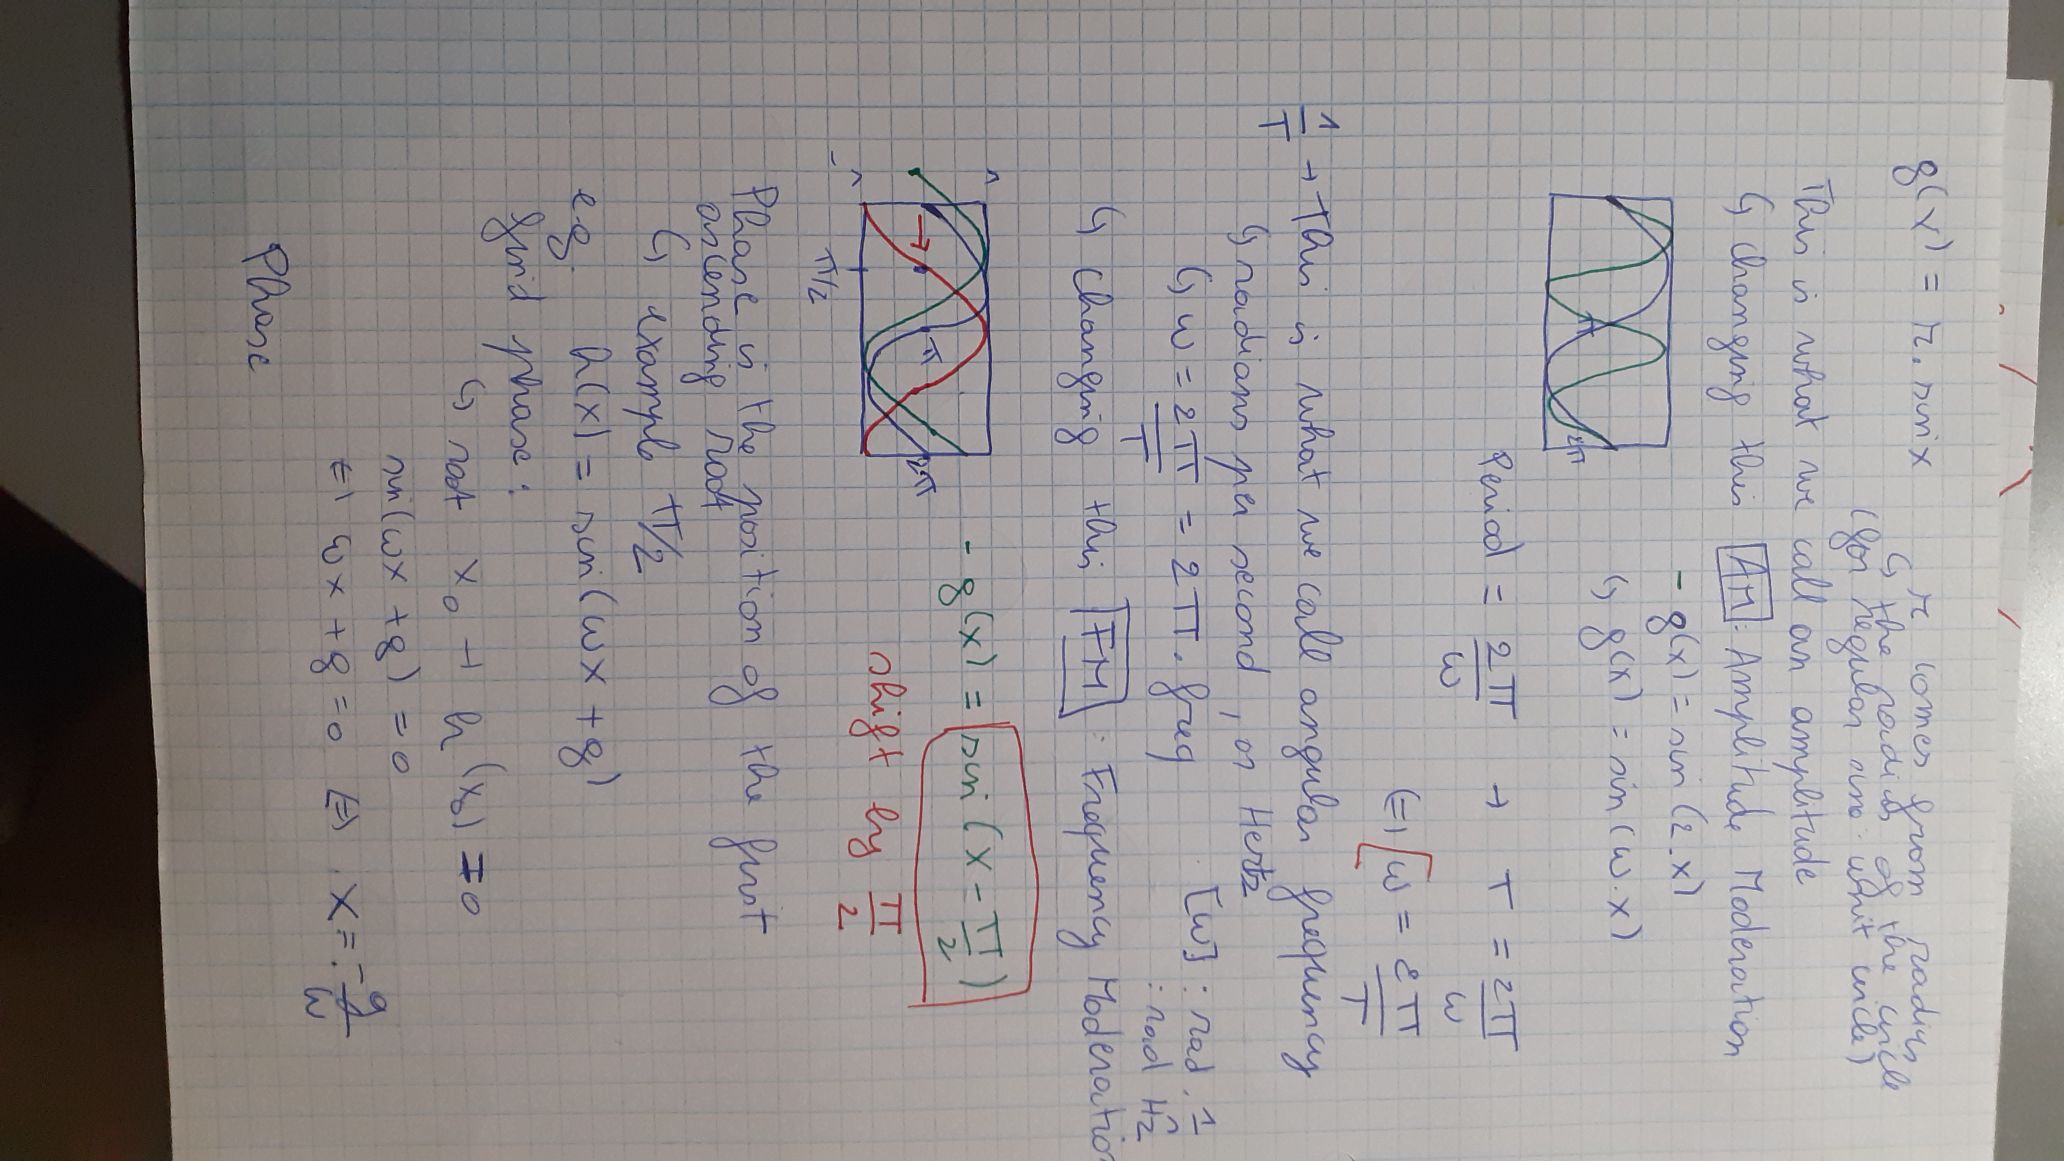 g(x) = r. sin x
r comes from radius
↳ the radius of the circle
(for regular sine: unit circle)
This is what we call an amplitude
↳ changing this AM: Amplitude Moderation
- g(x) = sin (2.x)
↳ g(x) = sin (ω.x)
π
2π
Period = 2π/ω → T = 2π/ω
⇔ ω = 2π/T
1/T → This is what we call angular frequency
↳ radians per second, or Hertz
↳ ω = 2π/T = 2π. freq
[ω] : rad . 1
: rad Hz
↳ changing this FM : Frequency Moderatio
1
- g(x) = sin (x - π/2)
π
2π
-1
π/2
shift by π/2
Phase is the position of the first
ascending root
↳ example π/2
e.g. h(x) = sin (ωx + g)
find phase:
↳ root x₀ → h (x₀) = 0
sin (ωx + g) = 0
⇔ ωx + g = 0 ⇔ x = -g/ω
Phase